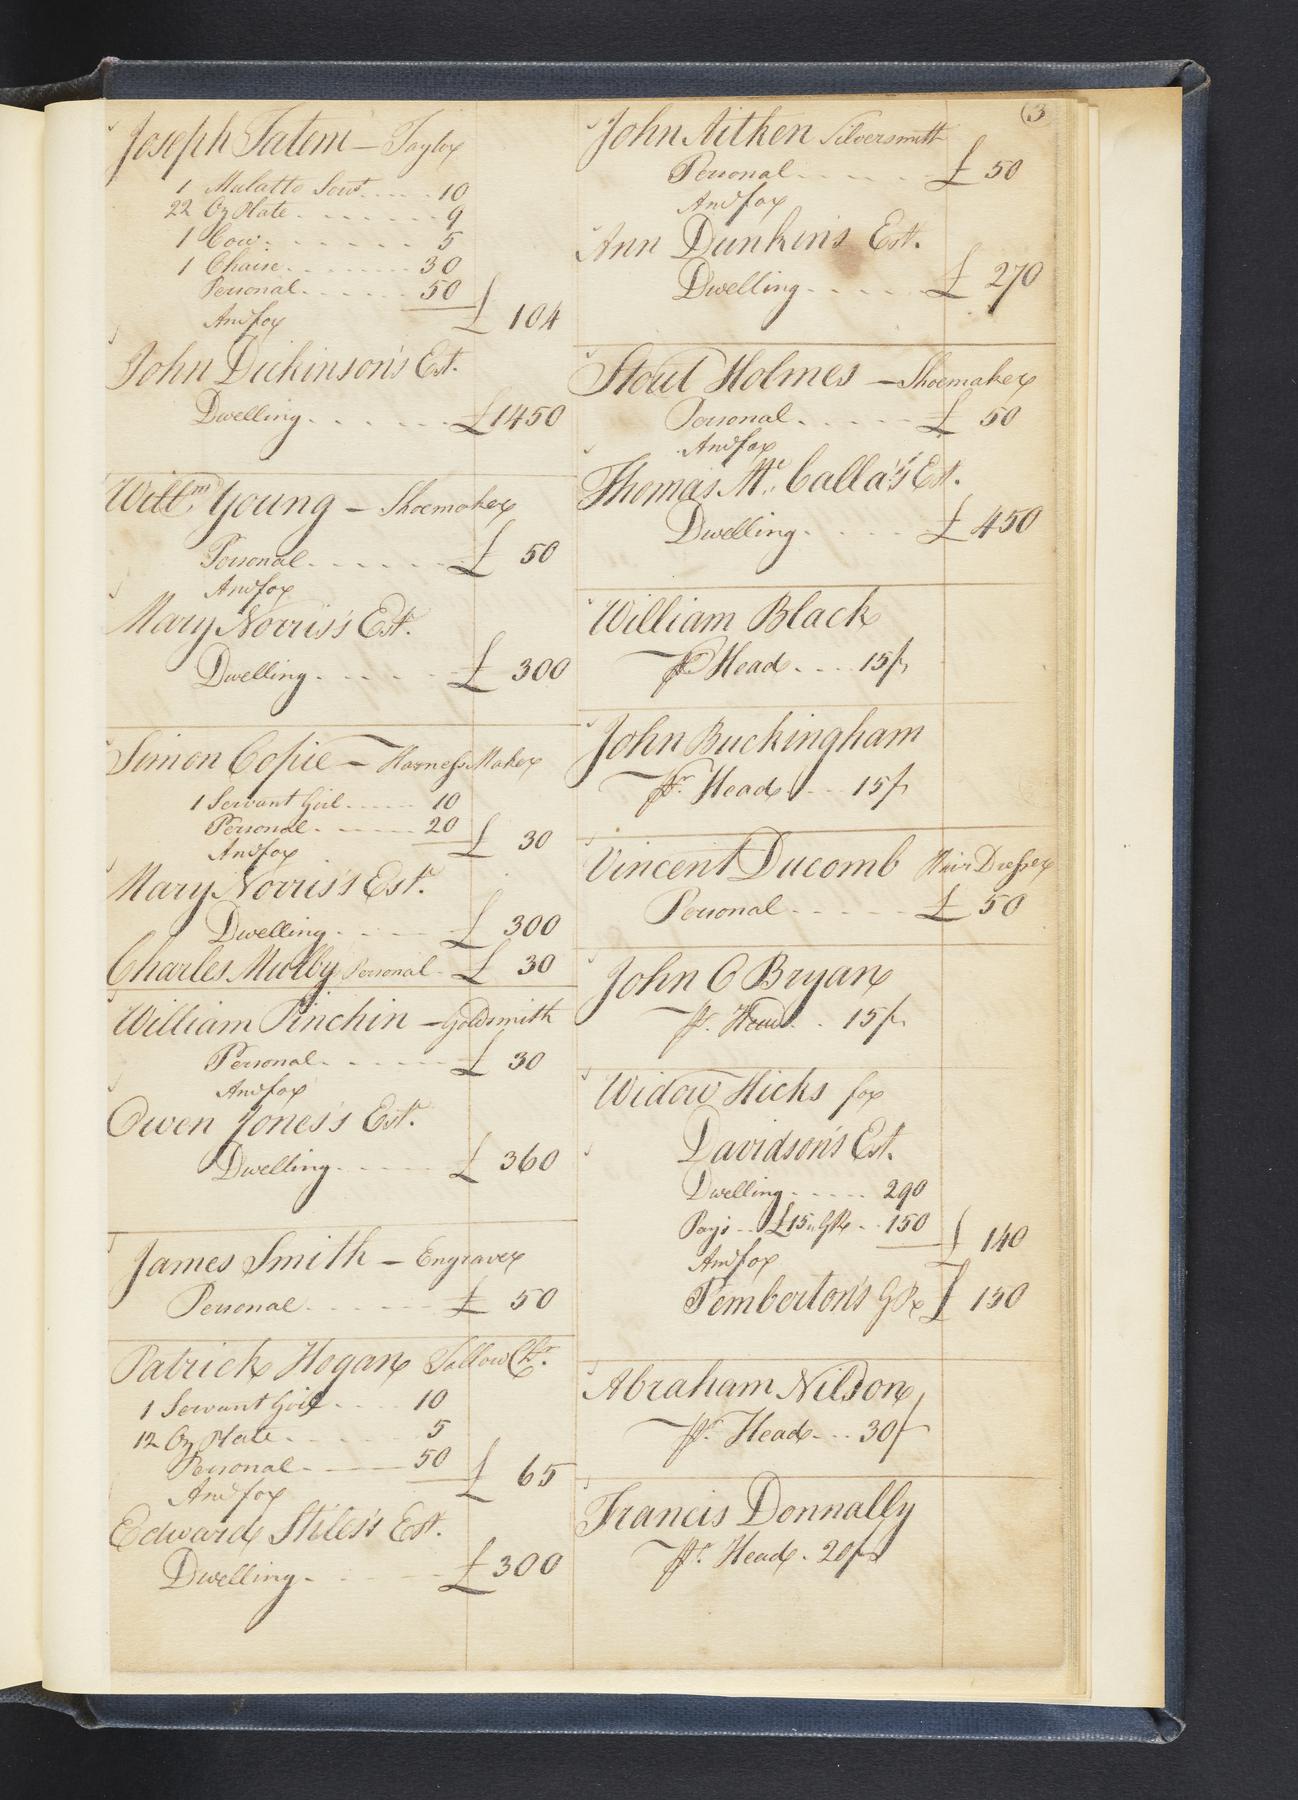 (3
Joseph Tatem — Taylor
1 Mulatto Servt. .... 10
22 Oz Plate ...... 9
1 Cow ...... 5
1 Chaise ...... 30
Personal ...... 50
And for £ 104
John Dickinson's Est.
Dwelling ...... £1450
Willm. Young — Shoemaker
Personal ...... £ 50
And for
Mary Norris's Est.
Dwelling ...... £ 300
Simon Copie — Harness Maker
1 Servant Girl ..... 10
Personal ..... 20 £ 30
And for
Mary Norris's Est.
Dwelling ..... £ 300
Charles Mulby Personal - £ 30
William Pinchin — Goldsmith
Personal ..... £ 30
And for
Owen Jones's Est.
Dwelling ..... £ 360
James Smith — Engraver
Personal ..... £ 50
Patrick Hogan Tallow Chr.
1 Servant Girl .... 10
12 Oz Plate ..... 5
Personal ..... 50 £ 65
And for
Edward Stiles's Est.
Dwelling ..... £300
John Aitken Silversmith
Personal ..... £ 50
And for
Ann Dunkin's Est.
Dwelling ..... £ 270
Stout Holmes — Shoemaker
Personal ..... £ 50
And for
Thomas Mc. Calla's Est.
Dwelling ..... £ 450
William Black
Pr. Head .... 15/
John Buckingham
Pr. Head .... 15/
Vincent Ducomb Hair Dresser
Personal ..... £ 50
John O Bryan
Pr. Head . . 15/
Widow Hicks for
Davidson's Est.
Dwelling ..... 290
Pays .. £15 " GR .. 150 £ 140
And for
Pemberton's GR £ 150
Abraham Nilson
Pr. Head ... 30/
Francis Donnally
Pr. Head . 20/